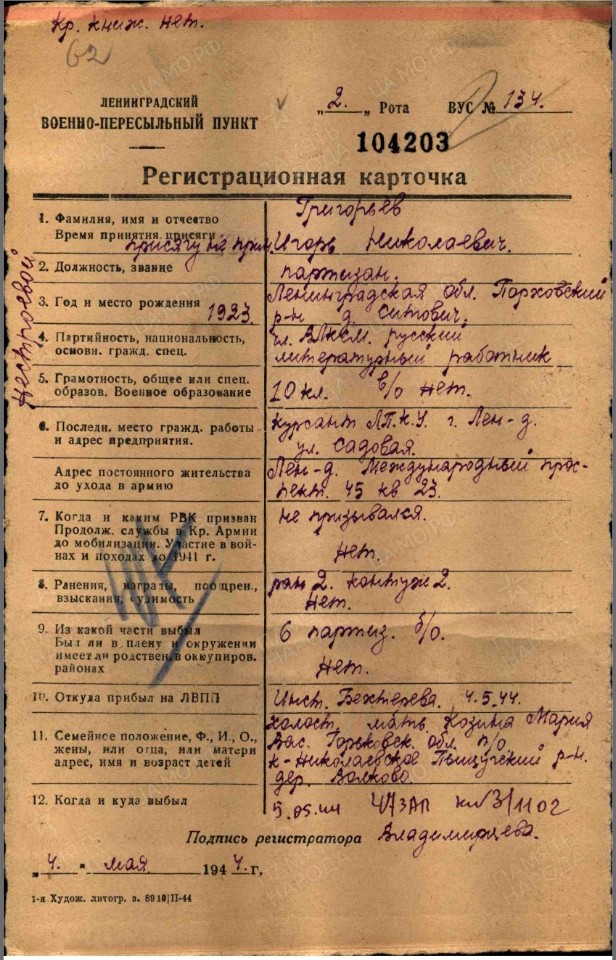 Кр. книж. нет.
62
ЛЕНИНГРАДСКИЙ
ВОЕННО-ПЕРЕСЫЛЬНЫЙ ПУНКТ
„2.„ Рота ВУС № 134.
104203
Регистрационная карточка
Нестроевой
1. Фамилия, имя и отчество
Время принятия присяги
Григорьев
присягу не прин. Игорь Николаевич.
2. Должность, звание
партизан.
3. Год и место рождения 1923.
Ленинградская обл. Порховский
р-н д. Ситович.
4. Партийность, национальность,
основн. гражд. спец.
чл. ВЛКСМ. русский
литературный работник
5. Грамотность, общее или спец.
образов. Военное образование
10 кл. в/о нет.
6. Последн. место гражд. работы
и адрес предприятия.
курсант г. Лен-д.
ул. Садовая.
Адрес постоянного жительства
до ухода в армию
Лен-д. Международный прос-
пект. 45 кв 23.
7. Когда и каким РВК призван
Продолж. службы в Кр. Армии
до мобилизации. Участие в вой-
нах и походах до 1941 г.
не призывался.
Нет.
8. Ранения, награды, поощрен.,
взыскания, судимость
ран 2. контуж 2.
Нет.
9. Из какой части выбыл
Был ли в плену и окружении
имеет ли родствен. в оккупиров.
районах
6 партиз. б/о.
Нет.
10. Откуда прибыл на ЛВПП
Инст. Бехтерева. 4.5.44.
11. Семейное положение, Ф., И., О.,
жены, или отца, или матери
адрес, имя и возраст детей
холост. мать Козина Мария
Вас. Горьковск. обл. п/о
к-Николаевское Пыщугский р-н.
дер. Волково.
12. Когда и куда выбыл
5.05.44 47 ЗАП кл№31/1102
Подпись регистратора Владимирцева.
„4.„ мая 1944 г.
1-я Худож. литогр. з. 8910|II-44
ЦАМО РФ